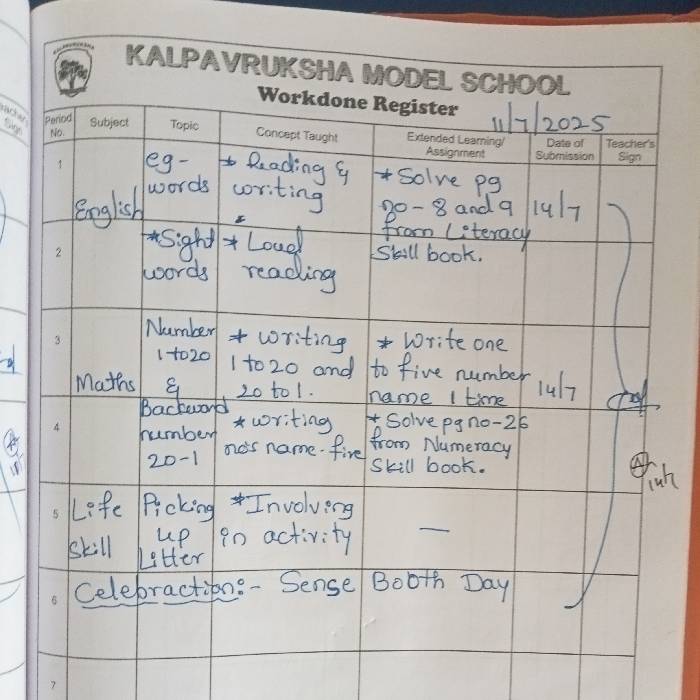 KALPAVRUKSHA MODEL SCHOOL
Workdone Register
11/7/2025
Period No. Subject Topic Concept Taught Extended Learning/ Assignment Date of Submission Teacher's Sign
1 English eg- words * Reading & writing * Solve pg no - 8 and 9 from Literacy Skill book. 14/7
2 *Sight words * Loud reading
3 Maths Number 1 to 20 & * writing 1 to 20 and 20 to 1. * Write one to five number name 1 time 14/7
4 Backword number 20-1 * writing no's name-five * Solve pg no-26 from Numeracy Skill book.
5 Life Skill Picking up Litter *Involving in activity —
6 Celebraction:- Sense Booth Day
7